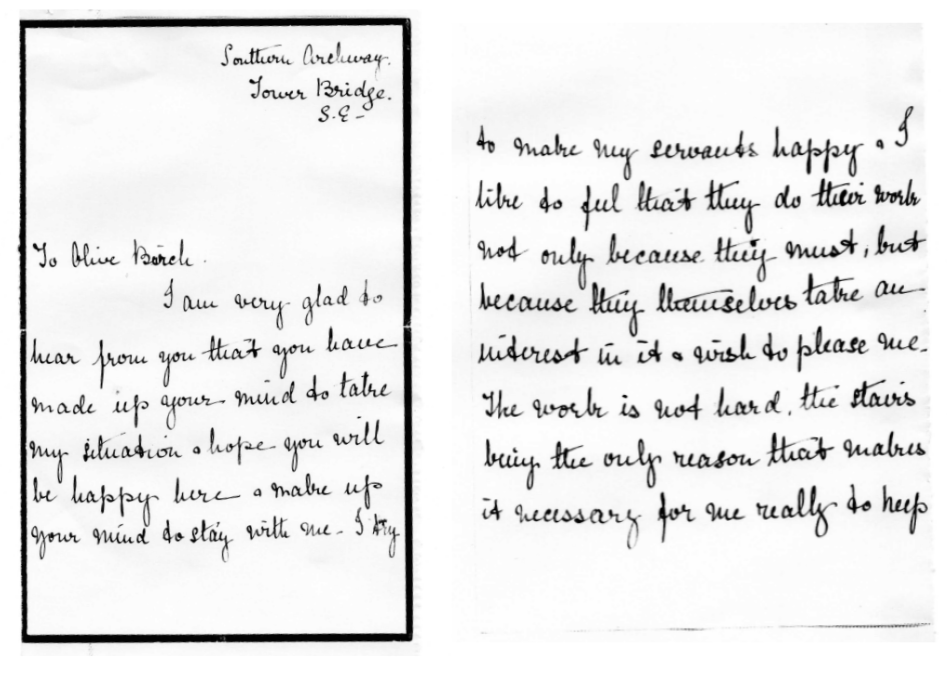 Southern Archway.
Tower Bridge.
S.E-
To Olive Birch.
I am very glad to
hear from you that you have
made up your mind to take
my situation & hope you will
be happy here & make up
your mind to stay with me - I try
to make my servants happy & I
like to feel that they do their work
not only because they must, but
because they themselves take an
interest in it & wish to please me.
The work is not hard, the stairs
being the only reason that makes
it necessary for me really to keep